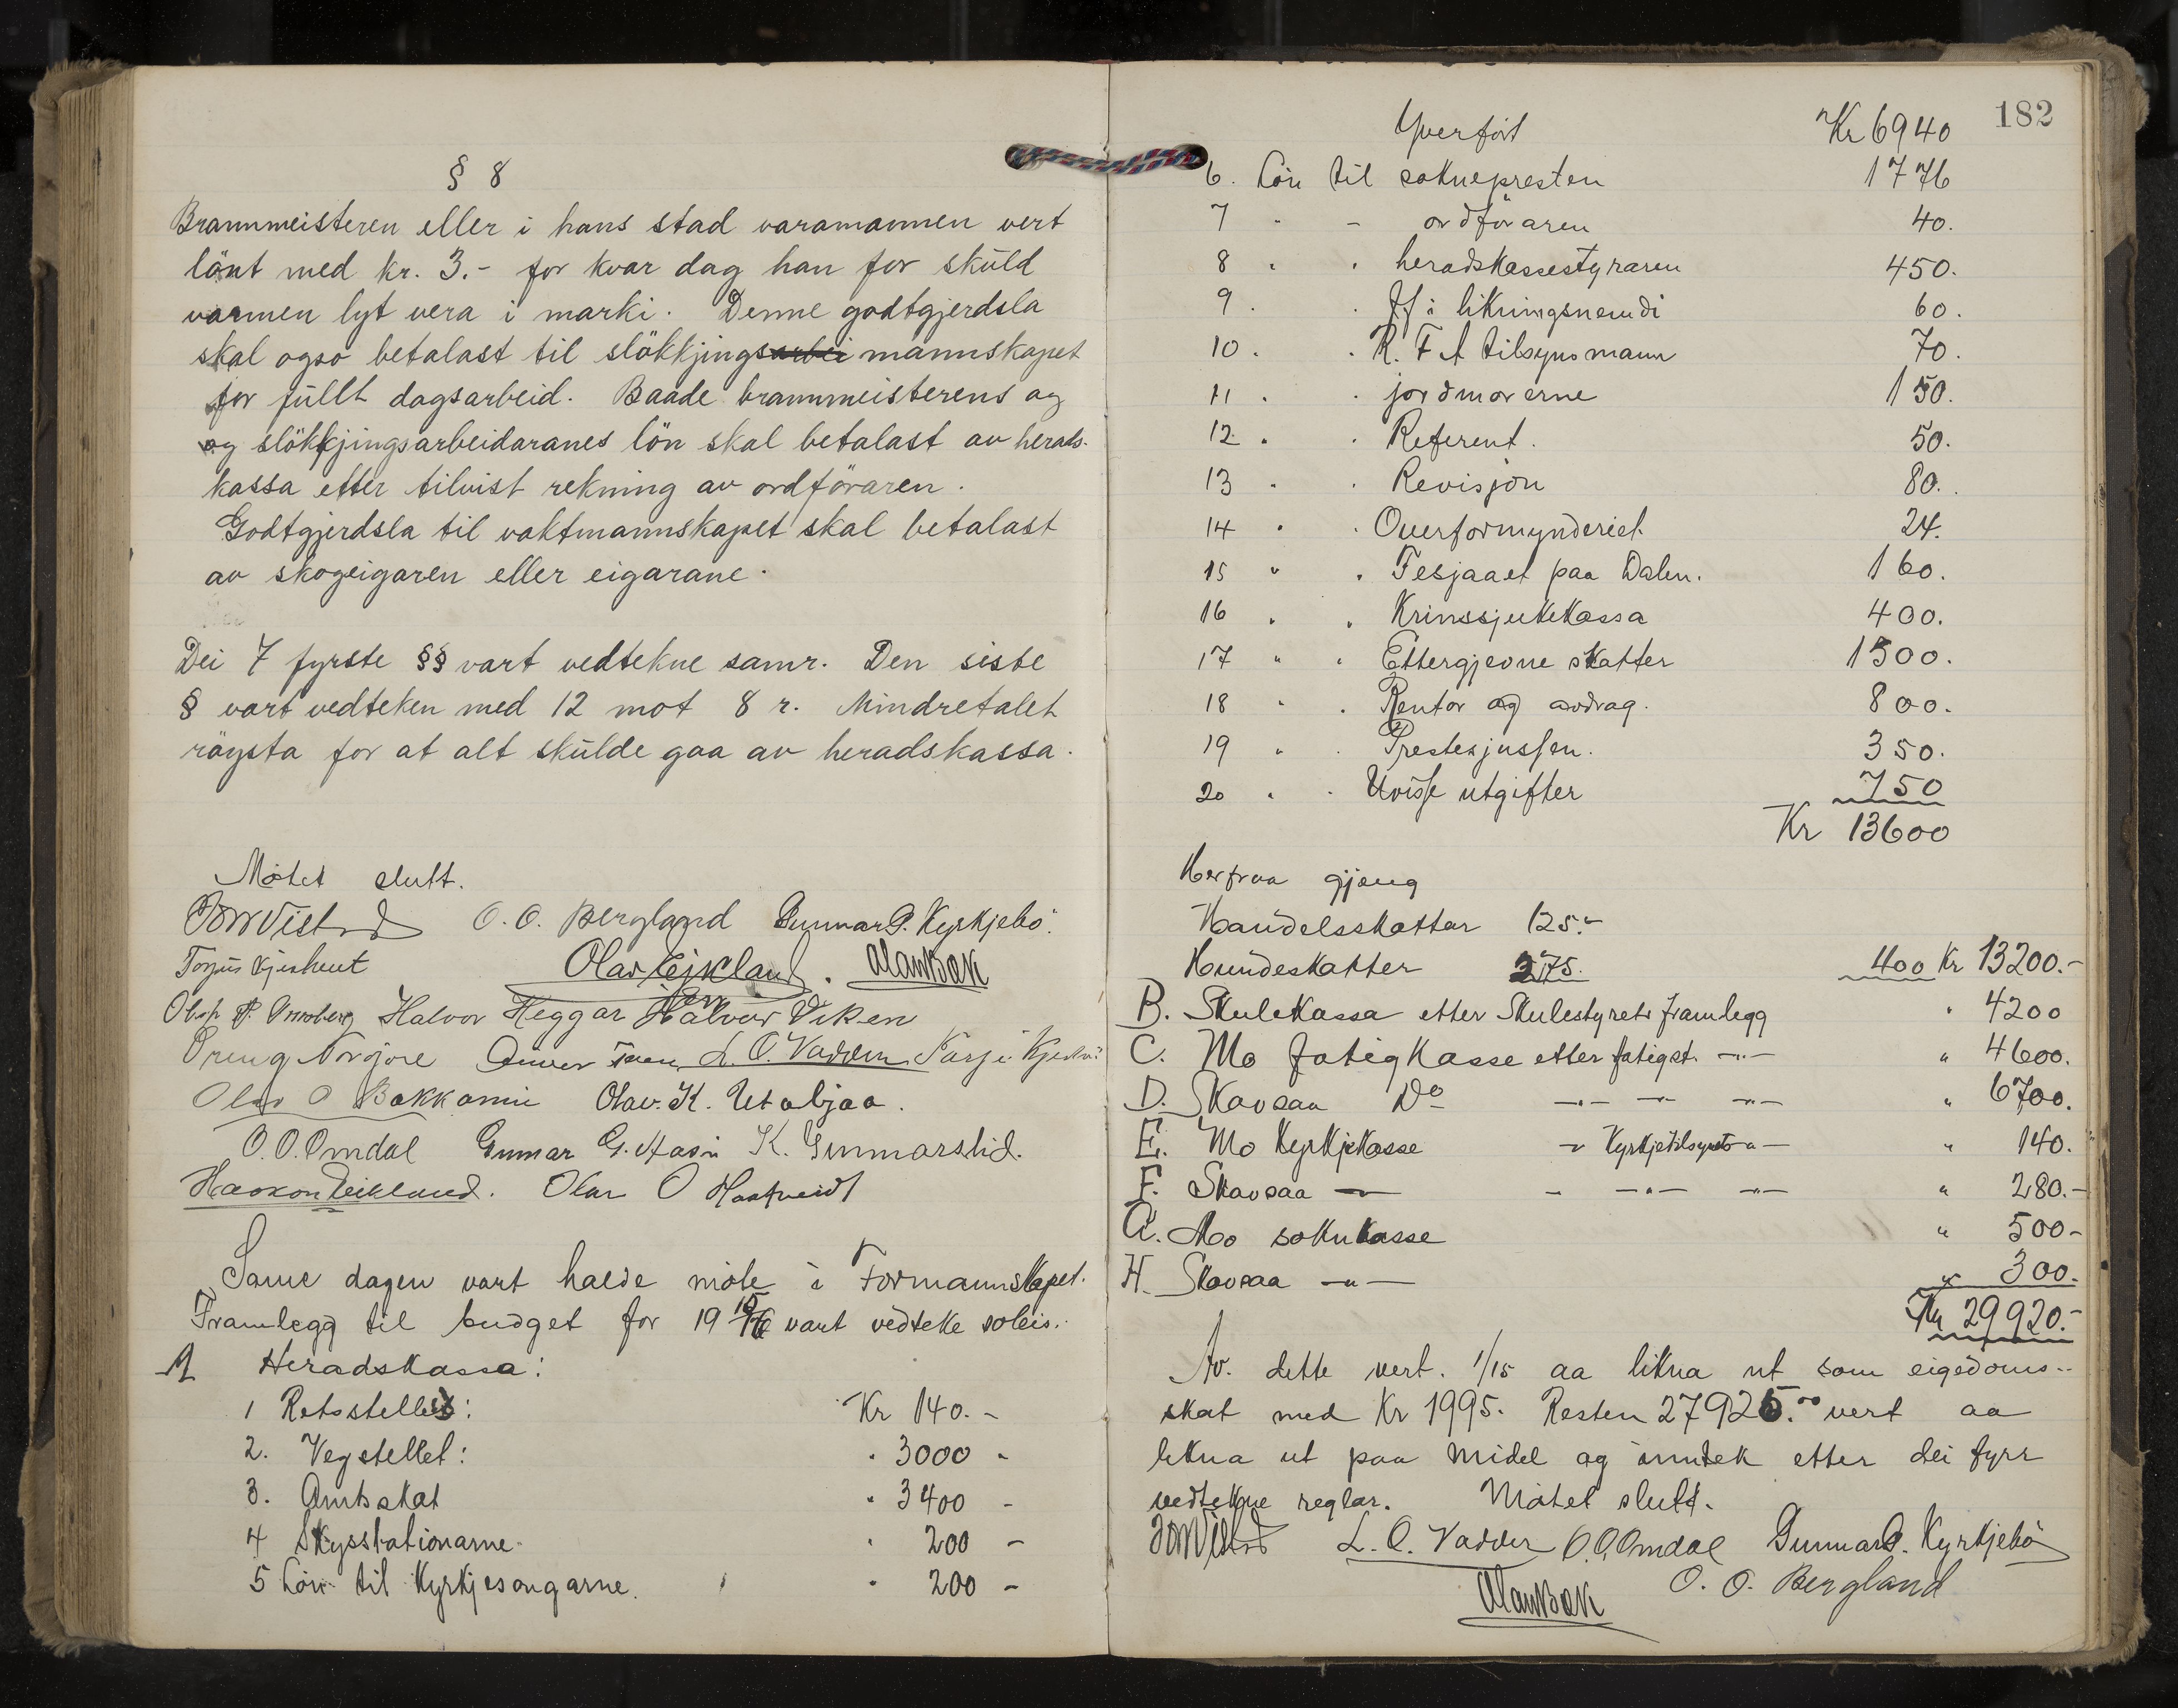 § 8
Brannmeisteren eller i hans stad varamannen vert
lönt med kr. 3.- for kvar dag han for skuld
varmen lyt vera i marki. Denne godtgjerdsla
skal ogso betalast til slökkjingsarbei mannskapet
for fullt dagsarbeid. Baade brannmeisterens og
og slökkjingsarbeidaranes lön skal betalast av herads-
kassa etter tilvist rekning av ordföraren.
Godtgjerdsla til vaktmannskapet skal betalast
av skogeigaren eller eigarane.
Dei 7 fyrste §§ vart vedtekne samr. Den siste
§ vart vedteken med 12 mot 8 r. Mindretalet
röysta for at alt skulde gaa av heradskassa.
Møtet slutt.
O. O. Bergland Gunnar G. Kyrkjebö.
Halvor Heggar Halvor Viken
L. O. Vadder
Olav O Bakkane Olav. K. Utabjaa.
O. O. Omdal Gunnar G. K. Gunnarslid.
Haakon Veikland. Olav O Haatveidt
Same dagen vart halde møte i Formannskapet.
Framlegg til budget for 19 15/16 vart vedteke soleis.
A Heradskassa:
1 Retsstellet: Kr 140.-
2. Vegstellet: " 3000 -
3. Amtsskat " 3400 -
4 Skysstationarne " 200 -
5 Løn til Kyrkjesongarne. " 200 -
182
Yverført Kr 6940
6. Løn til sokneprest­en 1776
7 " - ordføraren 40.
8 " " heradskassestyraren 450.
9 " " Ff i likningsnemdi 60.
10 " " R. F A tilsynsmann 70.
11 " " jordmorerne 150.
12 " " Referent. 50.
13 " " Revisjon 80.
14 " " Overformynderiet 24.
15 " " Fesjaaet paa Dalen. 160.
16 " " Krinssjukekassa 400.
17 " " Ettergjevne skatter 1500.
18 " " Rentor og avdrag. 800.
19 " " Prestesjussen. 350.
20 " " Uvisse utgifter 750
Kr 13600
Herfraa gjeng
Handelsskatter 125.-
Hundeskatter 275. 400 Kr 13200.-
B. Skulekassa etter Skulestyrets framlegg " 4200
C. Mo fatigkasse etter fatigst. -"- " 4600.
D. Skavsaa Do -"- -"- -"- " 6700.
E. Mo Kyrkjekasse - Kyrkjetilsynets -"- " 140.-
F. Skavsaa -"- - -"- -"- " 280.-
G. Mo soknkasse " 500-
H. Skavsaa -"- " 300.-
Kr 29920.-
Av dette vert 1/15 aa likna ut som eigedoms-
skat med Kr 1995. Resten 27925.00 vert aa
likna ut paa midel og inntek etter dei fyrr
vedtekne reglar. Møtet slutt.
L. O. Vadder O. O. Omdal Gunnar G. Kyrkjebö
O. O. Bergland